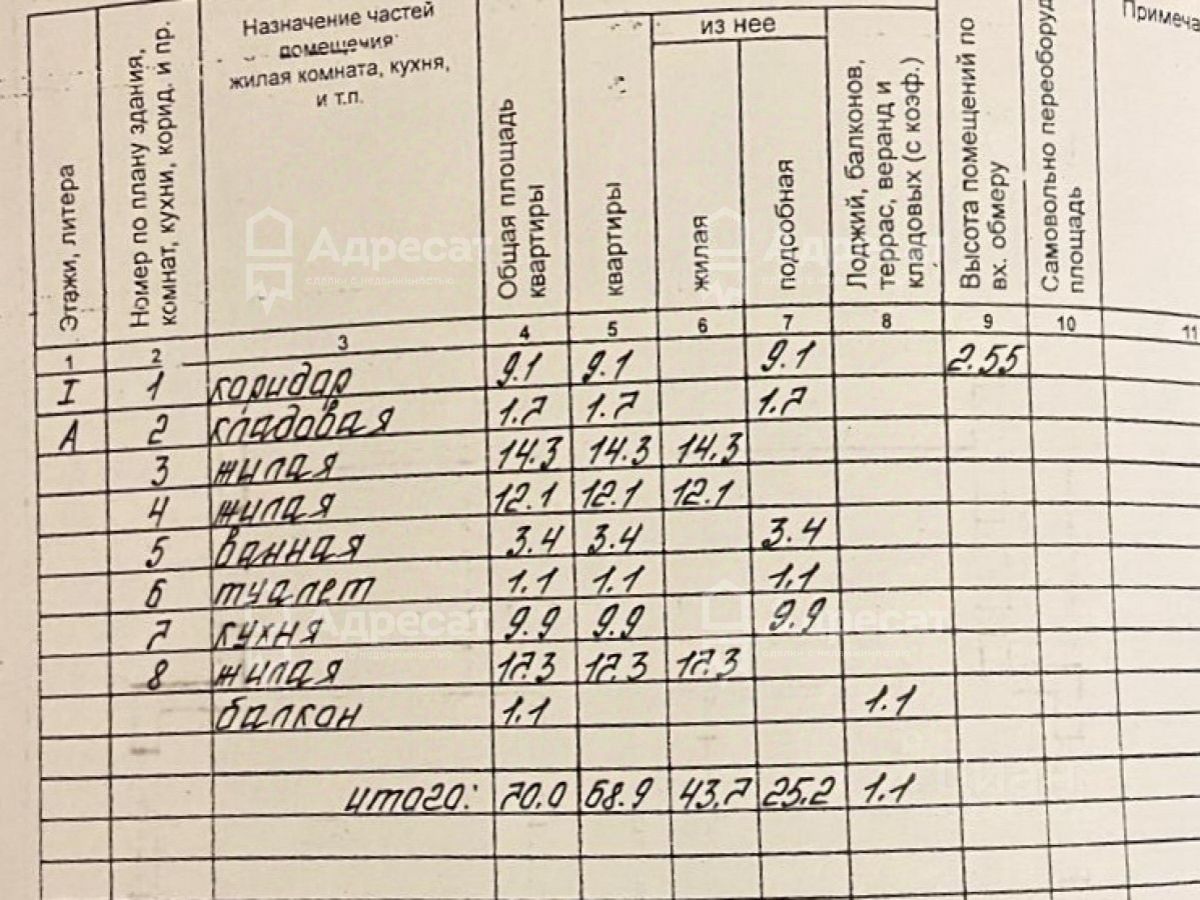 Этажи, литера
Номер по плану здания,
комнат, кухни, корид. и пр.
Назначение частей
помещения
жилая комната, кухня,
и т.п.
Общая площадь
квартиры
из нее
квартиры
жилая
подсобная
Лоджий, балконов,
террас, веранд и
кладовых (с коэф.)
Высота помещений по
вх. обмеру
Самовольно переоборуд
площадь
Примеча
1 2 3 4 5 6 7 8 9 10 11
I 1 коридор 9.1 9.1 9.1 2.55
А 2 кладовая 1.7 1.7 1.7
3 жилая 14.3 14.3 14.3
4 жилая 12.1 12.1 12.1
5 ванная 3.4 3.4 3.4
6 туалет 1.1 1.1 1.1
7 кухня 9.9 9.9 9.9
8 жилая 17.3 17.3 17.3
балкон 1.1 1.1
итого: 70.0 68.9 43.7 25.2 1.1
Адресат
сделки с недвижимостью
Адресат
сделки с недвижимостью
Адресат
сделки с недвижимостью
Адресат
сделки с недвижимостью